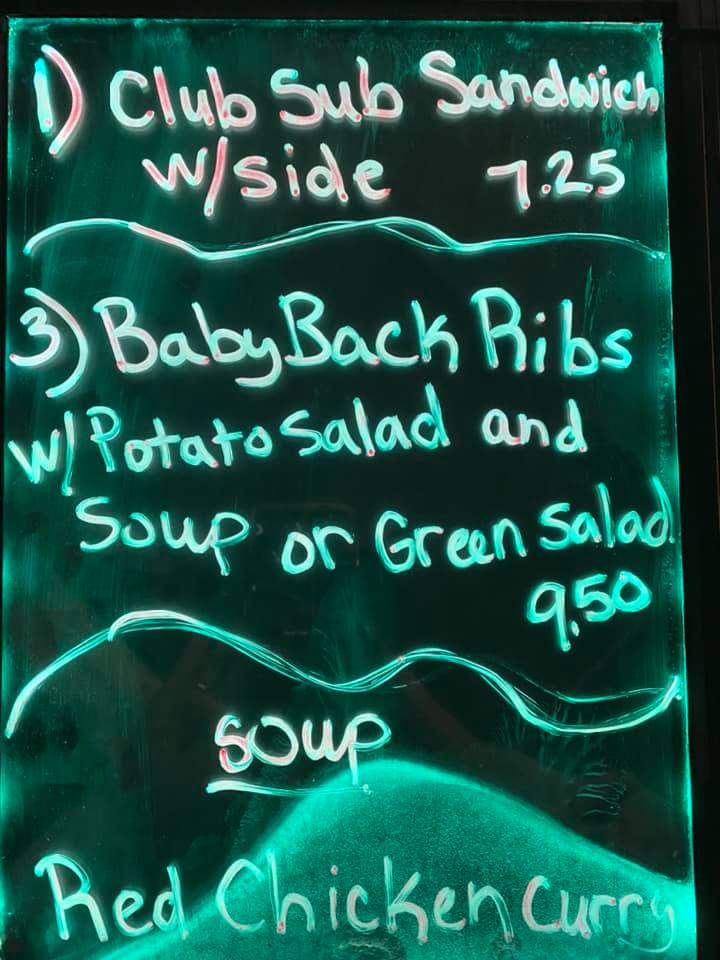 1) Club Sub Sandwich
w/side 7.25
3) Baby Back Ribs
w/ Potato Salad and
Soup or Green Salad
9.50
Soup
Red Chicken Curry